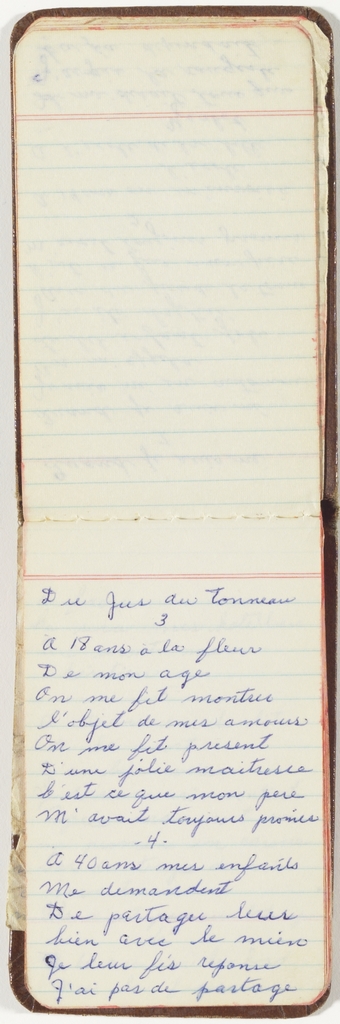 Du jus du tonneau
3
A 18 ans à la fleur
De mon age
On me fit montrer
l'objet de mes amours
On me fit present
D'une jolie maitresse
C'est ce que mon pere
M'avait toujours promis
-4-
A 40 ans mes enfants
Me demandent
De partager leurs
bien avec le mien
Je leur fis reponse
J'ai pas de partage